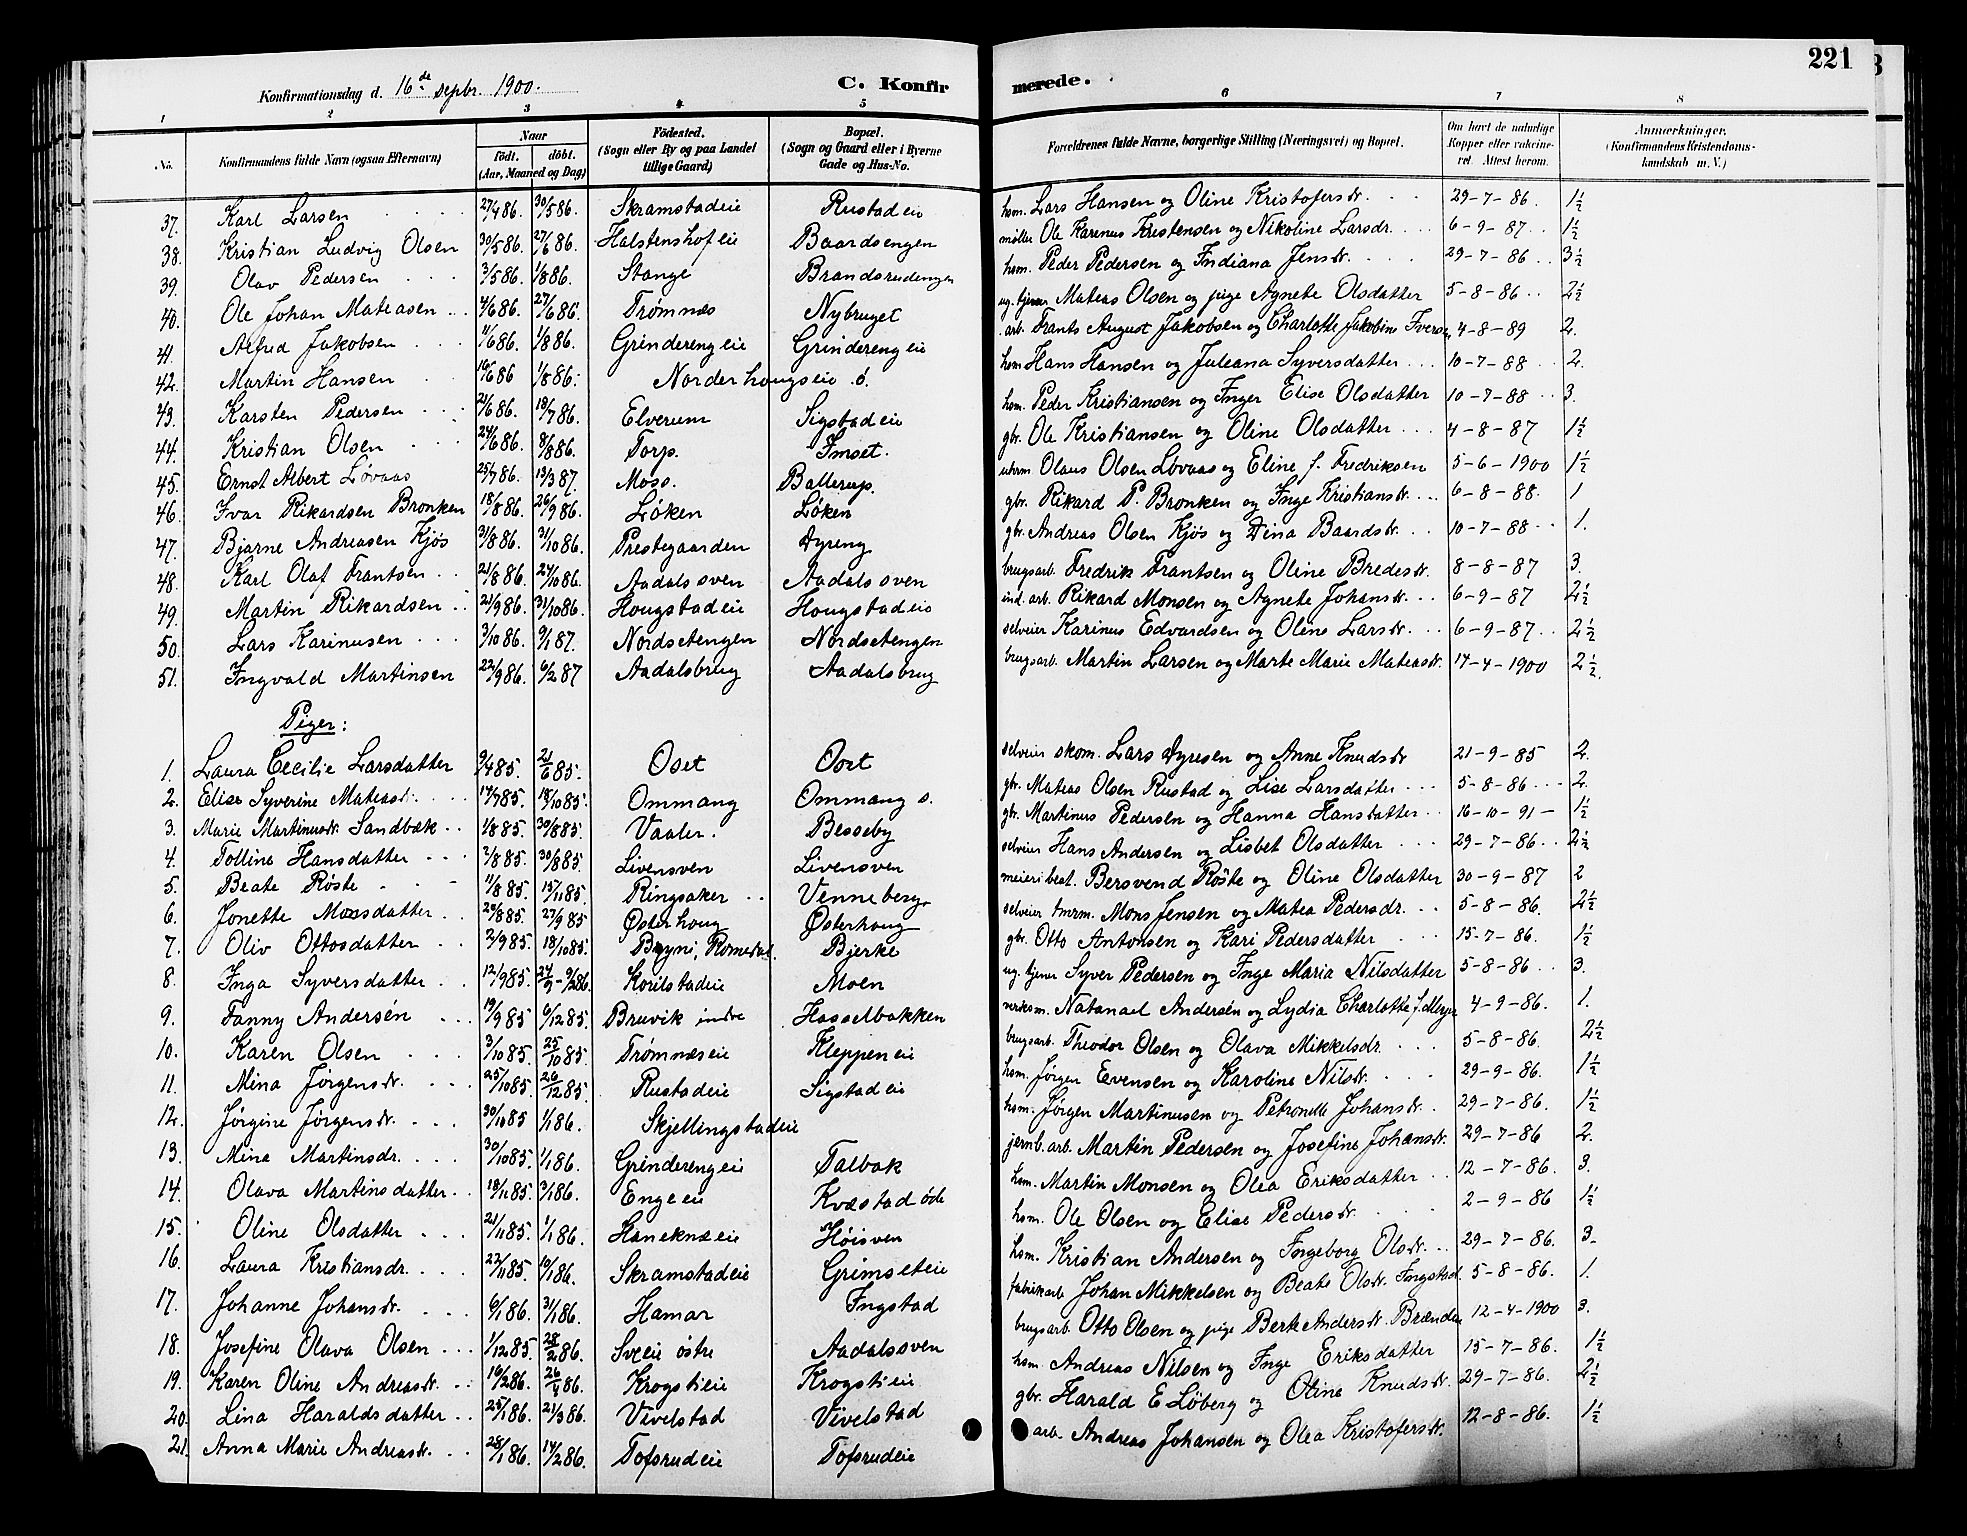 221
Konfirmationsdag d. 16de septbr. 1900.
C. Konfirmerede.
1 2 3 4 5 6 7 8
No. Konfirmandens fulde Navn (ogsaa Efternavn) Naar födt. döbt. (Aar, Maaned og Dag) Födested. (Sogn eller By og paa Landet tillige Gaard) Bopæl. (Sogn og Gaard eller i Byerne Gade og Hus-No. Forældrenes fulde Navne, borgerlige Stilling (Næringsvei) og Bopæl. Om havt de naturlige Kopper eller vakcineret. Attest herom. Anmærkninger. (Konfirmandens Kristendomskundskab m. V.)
37. Karl Larsen 27/4 86. 30/5 86. Skramstadeie Rustadeie hsm. Lars Hansen og Oline Kristofersdr. 29-7-86. 1½
38. Kristian Ludvig Olsen 30/5 86. 27/6 86. Halstenshofeie Baardsengen møller Ole Karenus Kristensen og Nikoline Larsdr. 6-9-87. 1½
39. Olav Pedersen 3/5 86. 1/8 86. Stange Brandsrudengen hsm. Peder Pedersen og Indiana Jensdr. 29-7-86. 3½
40. Ole Johan Mateasen 4/6 86. 27/6 86. Trømnæs Nybruget ug. tjener Mateas Olsen og pige Agnete Olsdatter 5-8-86. 2½
41. Alfred Jakobsen 11/6 86. 1/8 86. Grinderengeie Grinderengeie arb. Frants August Jakobsen og Charlotte Jakobine Iversen 4-8-89 2.
42. Martin Hansen 16/6 86 1/8 86. Norderhougseie ø. hsm Hans Hansen og Juleana Syversdatter 10-7-88 2.
43. Karsten Pedersen 21/6 86. 18/7 86. Elverum Sigstadeie hsm. Peder Kristiansen og Inger Elise Olsdatter 10-7-88 3.
44. Kristian Olsen 24/6 86. 8/8 86. Torp. Imset. gbr. Ole Kristiansen og Oline Olsdatter 4-8-87 1½
45. Ernst Albert Løvaas 25/7 86. 13/3 87. Moss. Ballerup. uhrm. Olaus Olsen Løvaas og Eline f. Fredriksen 5-6-1900 1½
46. Ivar Rikardsen Bronken 18/8 86. 26/9 86. Løken Løken gbr. Rikard P. Bronken og Inge Kristiansdr. 6-8-88. 1
47. Bjarne Andreasen Kjøs 31/8 86. 31/10 86. Prestegaarden Dyreng gbr. Andreas Olsen Kjøs og Dina Baardsdr. 10-7-88 1.
48. Karl Olaf Frantsen 21/8 86. 24/10 86. Aadalssven Aadalssven brugsarb. Fredrik Frantsen og Oline Bredesdr. 8-8-87 3.
49. Martin Rikardsen 21/9 86. 31/10 86. Hougstadeie Hougstadeie ind. arb. Rikard Monsen og Agnete Johansdr. 6-9-87 2½
50. Lars Karinusen 3/10 86. 9/1 87. Nordsetengen Nordsetengen selveier Karinus Edvardsen og Oline Larsdr. 6-9-87 2½
51. Ingvald Martinsen 22/9 86. 6/2 87 Aadalsbrug Aadalsbrug brugsarb. Martin Larsen og Marte Marie Mateasdr. 17-4-1900 2½.
Piger:
1. Laura Cecilie Larsdatter 9/4 85. 21/6 85. Oset Oset selveier skom. Lars Dyresen og Anne Knudsdr 21-9-85 2.
2. Elise Syverine Mateasdr. 14/7 85. 18/10 85. Ommang Ommang s. gbr. Mateas Olsen Rustad og Lise Larsdatter 5-8-86 2.
3. Marie Martinusdr. Sandbæk 1/8 85. 30/8 85. Vaaler. Besseby gbr. Martinus Pedersen og Hanna Hansdatter 16-10-91 1½
4. Tolline Hansdatter 2/8 85. 30/8 85. Livensven Livensven selveier Hans Andersen og Lisbet Olsdatter 29-7-86 2½
5. Beate Røste 11/8 85. 15/11 85. Ringsaker Venneberg. meieribest. Bersvend Røste og Oline Olsdatter 30-9-87 2
6. Jonette Monsdatter 20/8 85. 27/9 85 Østerhoug Østerhoug selveier tmrm. Mons Jensen og Matea Pedersdr. 5-8-86. 2½
7. Oliv Ottosdatter 2/9 85. 18/10 85. Bryni, Romedal. Bjerke gbr. Otto Antonsen og Kari Pedersdatter 15-7-86. 1½
8. Inga Syversdatter 12/9 85. 27/9 - 9/2 86. Korilstadeie Moen ug. tjener Syver Pedersen og Inge Maria Nilsdatter 5-8-86 3.
9. Fanny Andersén 19/9 85 6/12 85. Bruvik indre Hasselbakken verksm. Natanael Andersén og Lydia Charlotte f. Meyer 4-9-86. 1.
10. Karen Olsen 3/10 85. 25/10 85. Trømnæseie Kleppeneie brugsarb. Theodor Olsen og Olava Mikkelsdr. 5-8-86. 2½
11. Mina Jørgensdr. 25/10 85. 26/12 85. Rustadeie Sigstadeie hsm. Jørgen Evensen og Karoline Nilsdr. 29-9-86. 1½
12. Jørgine Jørgensdr. 30/10 85 1/1 86. Skjellingstadeie hsm. Jørgen Martinusen og Petronelle Johansdr. 29-7-86. 1½
13. Mina Martinsdr. 30/10 85. 1/1 86. Grinderengeie Talbak jernb. arb. Martin Pedersen og Josefine Johansdr. 29-7-86 2.
14. Olava Martinsdatter 18/11 85. 3/1 86. Engeeie Kvæstad øde hsm. Martin Monsen og Olea Eriksdatter 12-7-86. 3.
15. Oline Olsdatter 21/11 85. 1/1 86. Haneknæeie Høisven hsm. Ole Olsen og Elise Pedersdr. 2-9-86 1½
16. Laura Kristiansdr. 22/11 85. 10/1 86. Skramstadeie Grimseteie hsm. Kristian Andersen og Ingeborg Olsdr. 29-7-86. 3.
17. Johanne Johansdr. 6/1 86. 31/1 86. Hamar Ingstad fabrikarb. Johan Mikkelsen og Beate Olsdr. Ingstad 5-8-86. 1.
18. Josefine Olava Olsen 1/12 85. 28/2 86. Sveeie østre Aadalssven brugsarb. Otto Olsen og pige Berte Andersdr. Brænden 12-4-1900 3.
19. Karen Oline Andreasdr. 19/2 86. 26/4 86. Krogstieie Krogstieie hsm. Andreas Nilsen og Inge Eriksdatter 15-7-86. 1½
20. Lina Haraldsdatter 25/1 86. 21/3 86. Vivelstad Vivelstad gbr. Harald E Løberg og Oline Knudsdr. 29-7-86. 2½
21. Anna Marie Andreasdr. 28/1 86. 14/2 86. Tofsrudeie Tofsrudeie arb. Andreas Johansen og Olea Kristofersdr. 12-8-86. 1½